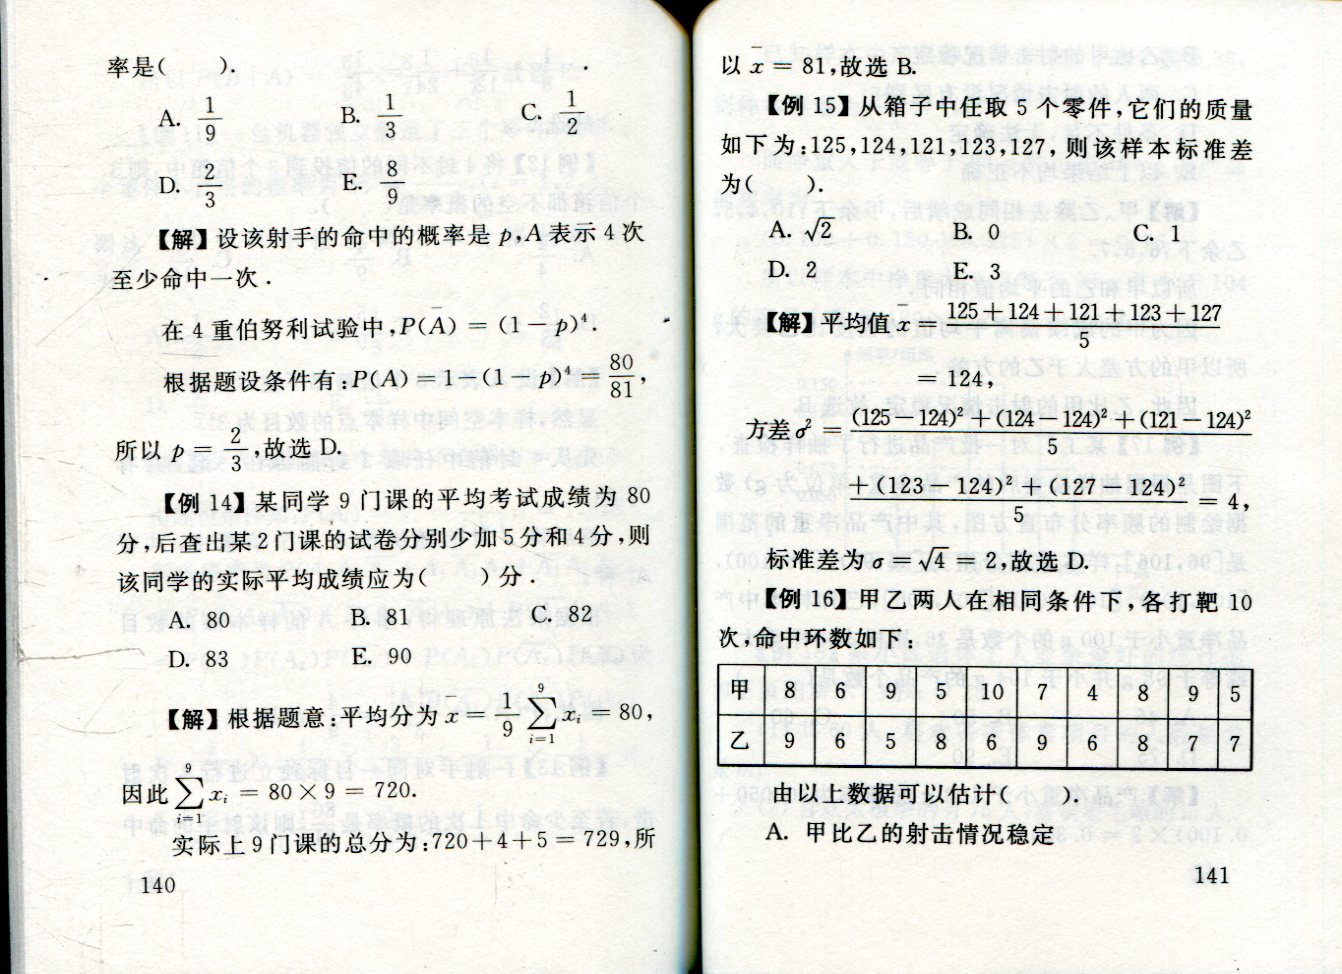 率是(  ).
A. 1/9 B. 1/3 C. 1/2
D. 2/3 E. 8/9
【解】设该射手的命中的概率是 p,A 表示 4 次
至少命中一次.
在 4 重伯努利试验中,P(Ā) = (1－p)⁴.
根据题设条件有:P(A) = 1－(1－p)⁴ = 80/81,
所以 p = 2/3,故选 D.
【例 14】某同学 9 门课的平均考试成绩为 80
分,后查出某 2 门课的试卷分别少加 5 分和 4 分,则
该同学的实际平均成绩应为(  )分.
A. 80 B. 81 C. 82
D. 83 E. 90
【解】根据题意:平均分为 x̄ = 1/9 ∑_{i=1}^{9} xᵢ = 80,
因此 ∑_{i=1}^{9} xᵢ = 80×9 = 720.
实际上 9 门课的总分为:720＋4＋5 = 729,所
140
以 x̄ = 81,故选 B.
【例 15】从箱子中任取 5 个零件,它们的质量
如下为:125,124,121,123,127,则该样本标准差
为(  ).
A. √2 B. 0 C. 1
D. 2 E. 3
【解】平均值 x̄ = (125＋124＋121＋123＋127)/5
= 124,
方差 σ² = (125－124)²＋(124－124)²＋(121－124)²/5
＋(123－124)²＋(127－124)²/5 = 4,
标准差为 σ = √4 = 2,故选 D.
【例 16】甲乙两人在相同条件下,各打靶 10
次,命中环数如下.
甲 8 6 9 5 10 7 4 8 9 5
乙 9 6 5 8 6 9 6 8 7 7
由以上数据可以估计(  ).
A. 甲比乙的射击情况稳定
141